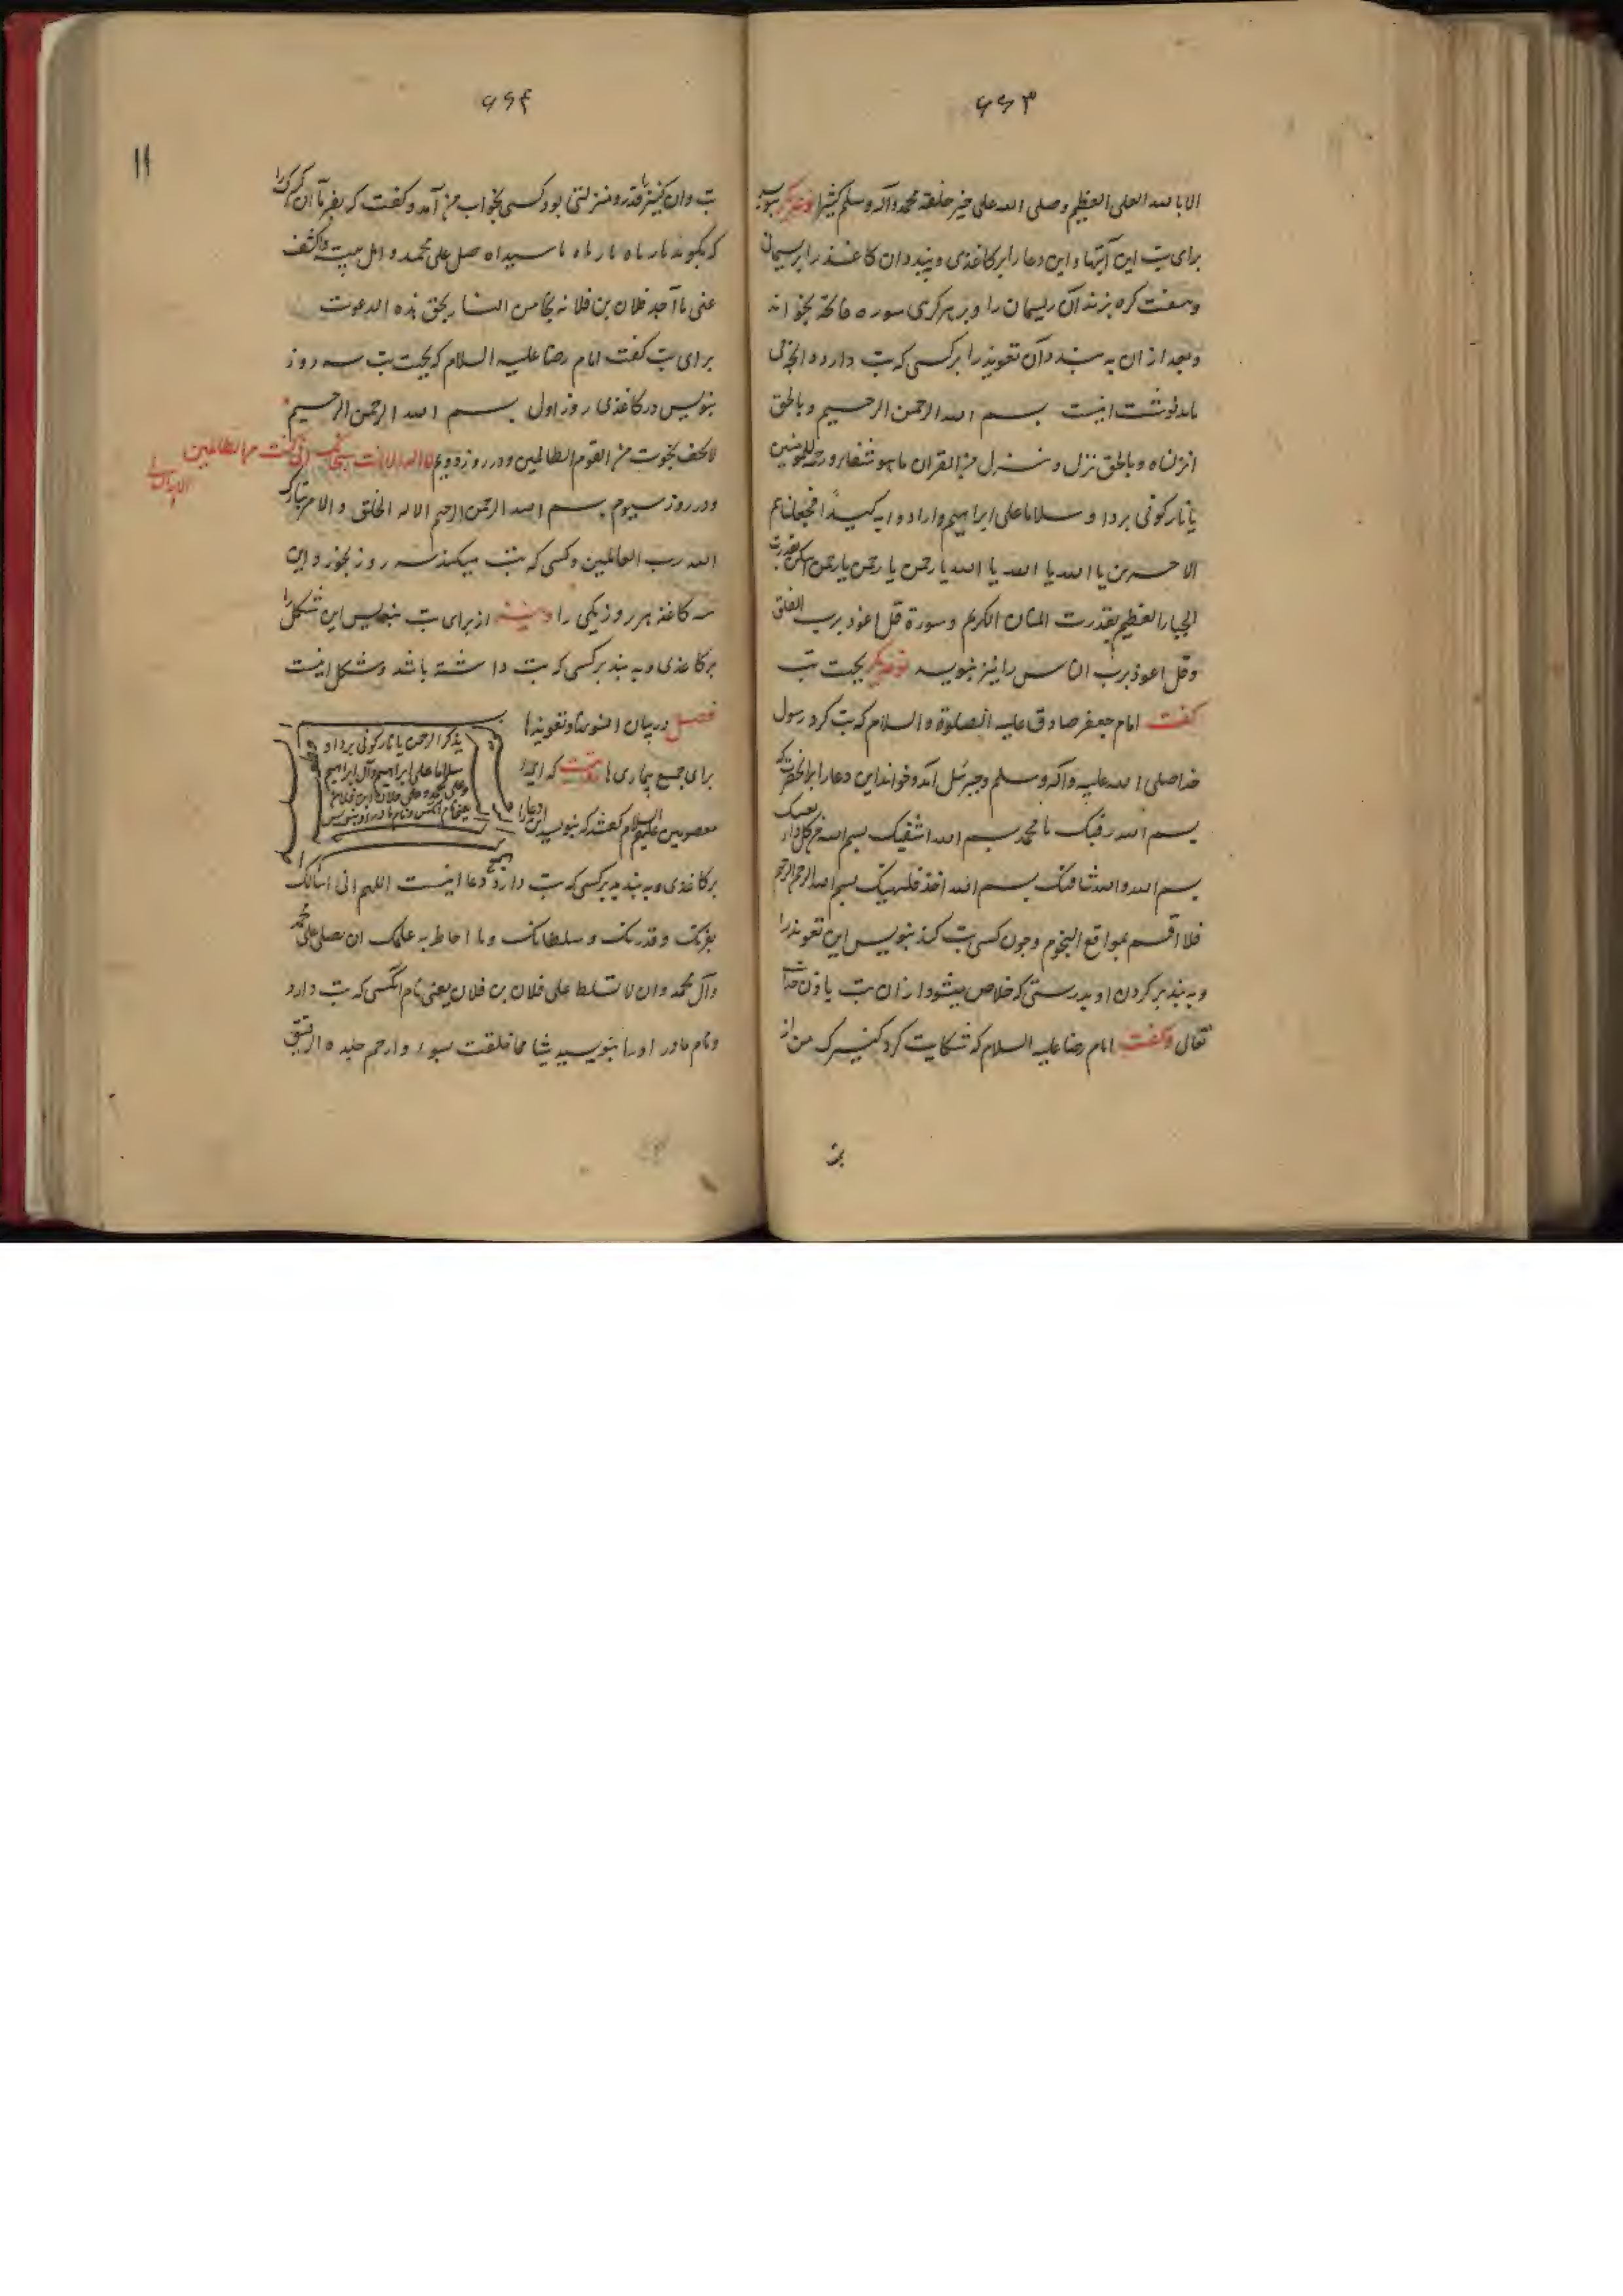 ۶۶۳
الا بالله العلی العظیم وصلی الله علی خیر خلقه محمد وآله وسلم کثیرا
برای تب این آیتها واین دعا را بر کاغذی و بندد ان کاغذ را بریسمانی
وهفت کره بزند آن ریسمان را و بر هر کرهی سوره فاتحه بخواند
وبعد از ان به بندد آن تعویذ را بر کسی که تب دارد
باید نوشت اینست بسم الله الرحمن الرحیم وبالحق
انزلناه وبالحق نزل وننزل من القران ما هو شفاء ورحمة للمومنین
یا نار کونی بردا وسلاما علی ابراهیم وارادوا به کیدا فجعلناهم
الاخسرین یا الله یا الله یا الله یا رحمن یا رحمن یا رحمن
الجبار العظیم بقدرت المنان الکریم وسورة قل اعوذ برب الفلق
وقل اعوذ برب الناس را نیز بنویسد بجهت تب
کفت امام جعفر صادق علیه الصلوة والسلام که تب کرد رسول
خدا صلی الله علیه وآله وسلم وجبرئیل آمد وخواند این دعا را
بسم الله رقیک یا محمد بسم الله اشفیک بسم الله من کل داء
بسم الله والله شافیک بسم الله خذ فلیهنیک بسم الله الرحمن الرحیم
فلا اقسم بمواقع النجوم وچون کسی تب کند بنویس این تعویذ را
وبه بند بر کردن او بدرستی که خلاص میشود از ان تب باذن خدای
تعالی وکفت امام رضا علیه السلام که شکایت کرد کنیزک من از
۶۶۴
تب وان کنیز را قدر ومنزلتی بود کسی بخواب من آمد وکفت که بفرما آن کنیزک را
که بکوید یا رباه یا رباه یا سیداه صل علی محمد واهل بیته واکشف
عنی ما اجد فلان بن فلانه
برای تب کفت امام رضا علیه السلام که بجهت تب سه روز
بنویس در کاغذی روز اول بسم الله الرحمن الرحیم
لا تخف نجوت من القوم الظالمین ودر روز دویم لا اله الا انت سبحانک انی کنت من الظالمین
ودر روز سیوم بسم الله الرحمن الرحیم الا له الخلق والامر تبارک
الله رب العالمین وکسی که تب میکند سه روز بخورد این
سه کاغذ هر روز یکی را از برای تب بنویس این شکل را
بر کاغذی وبه بند بر کسی که تب داشته باشد وشکل اینست
فصل در بیان افسونها وتعویذها
یذکر الرحمن یا نار کونی بردا و
سلاما علی ابراهیم وآل ابراهیم
برای جمیع بیماریها
معصومین علیهم السلام کفتند که بنویسد این دعا را
بر کاغذی وبه بندد بر کسی که تب دارد دعا اینست اللهم انی اسالک
بعزتک وقدرتک وسلطانک وما احاط به علمک ان تصلی علی محمد
وآل محمد وان لا تسلط علی فلان بن فلان یعنی نام انکسی که تب دارد
ونام مادر او را بنویسید شیئا مما خلقت بسوء وارحم جلده الرقیق